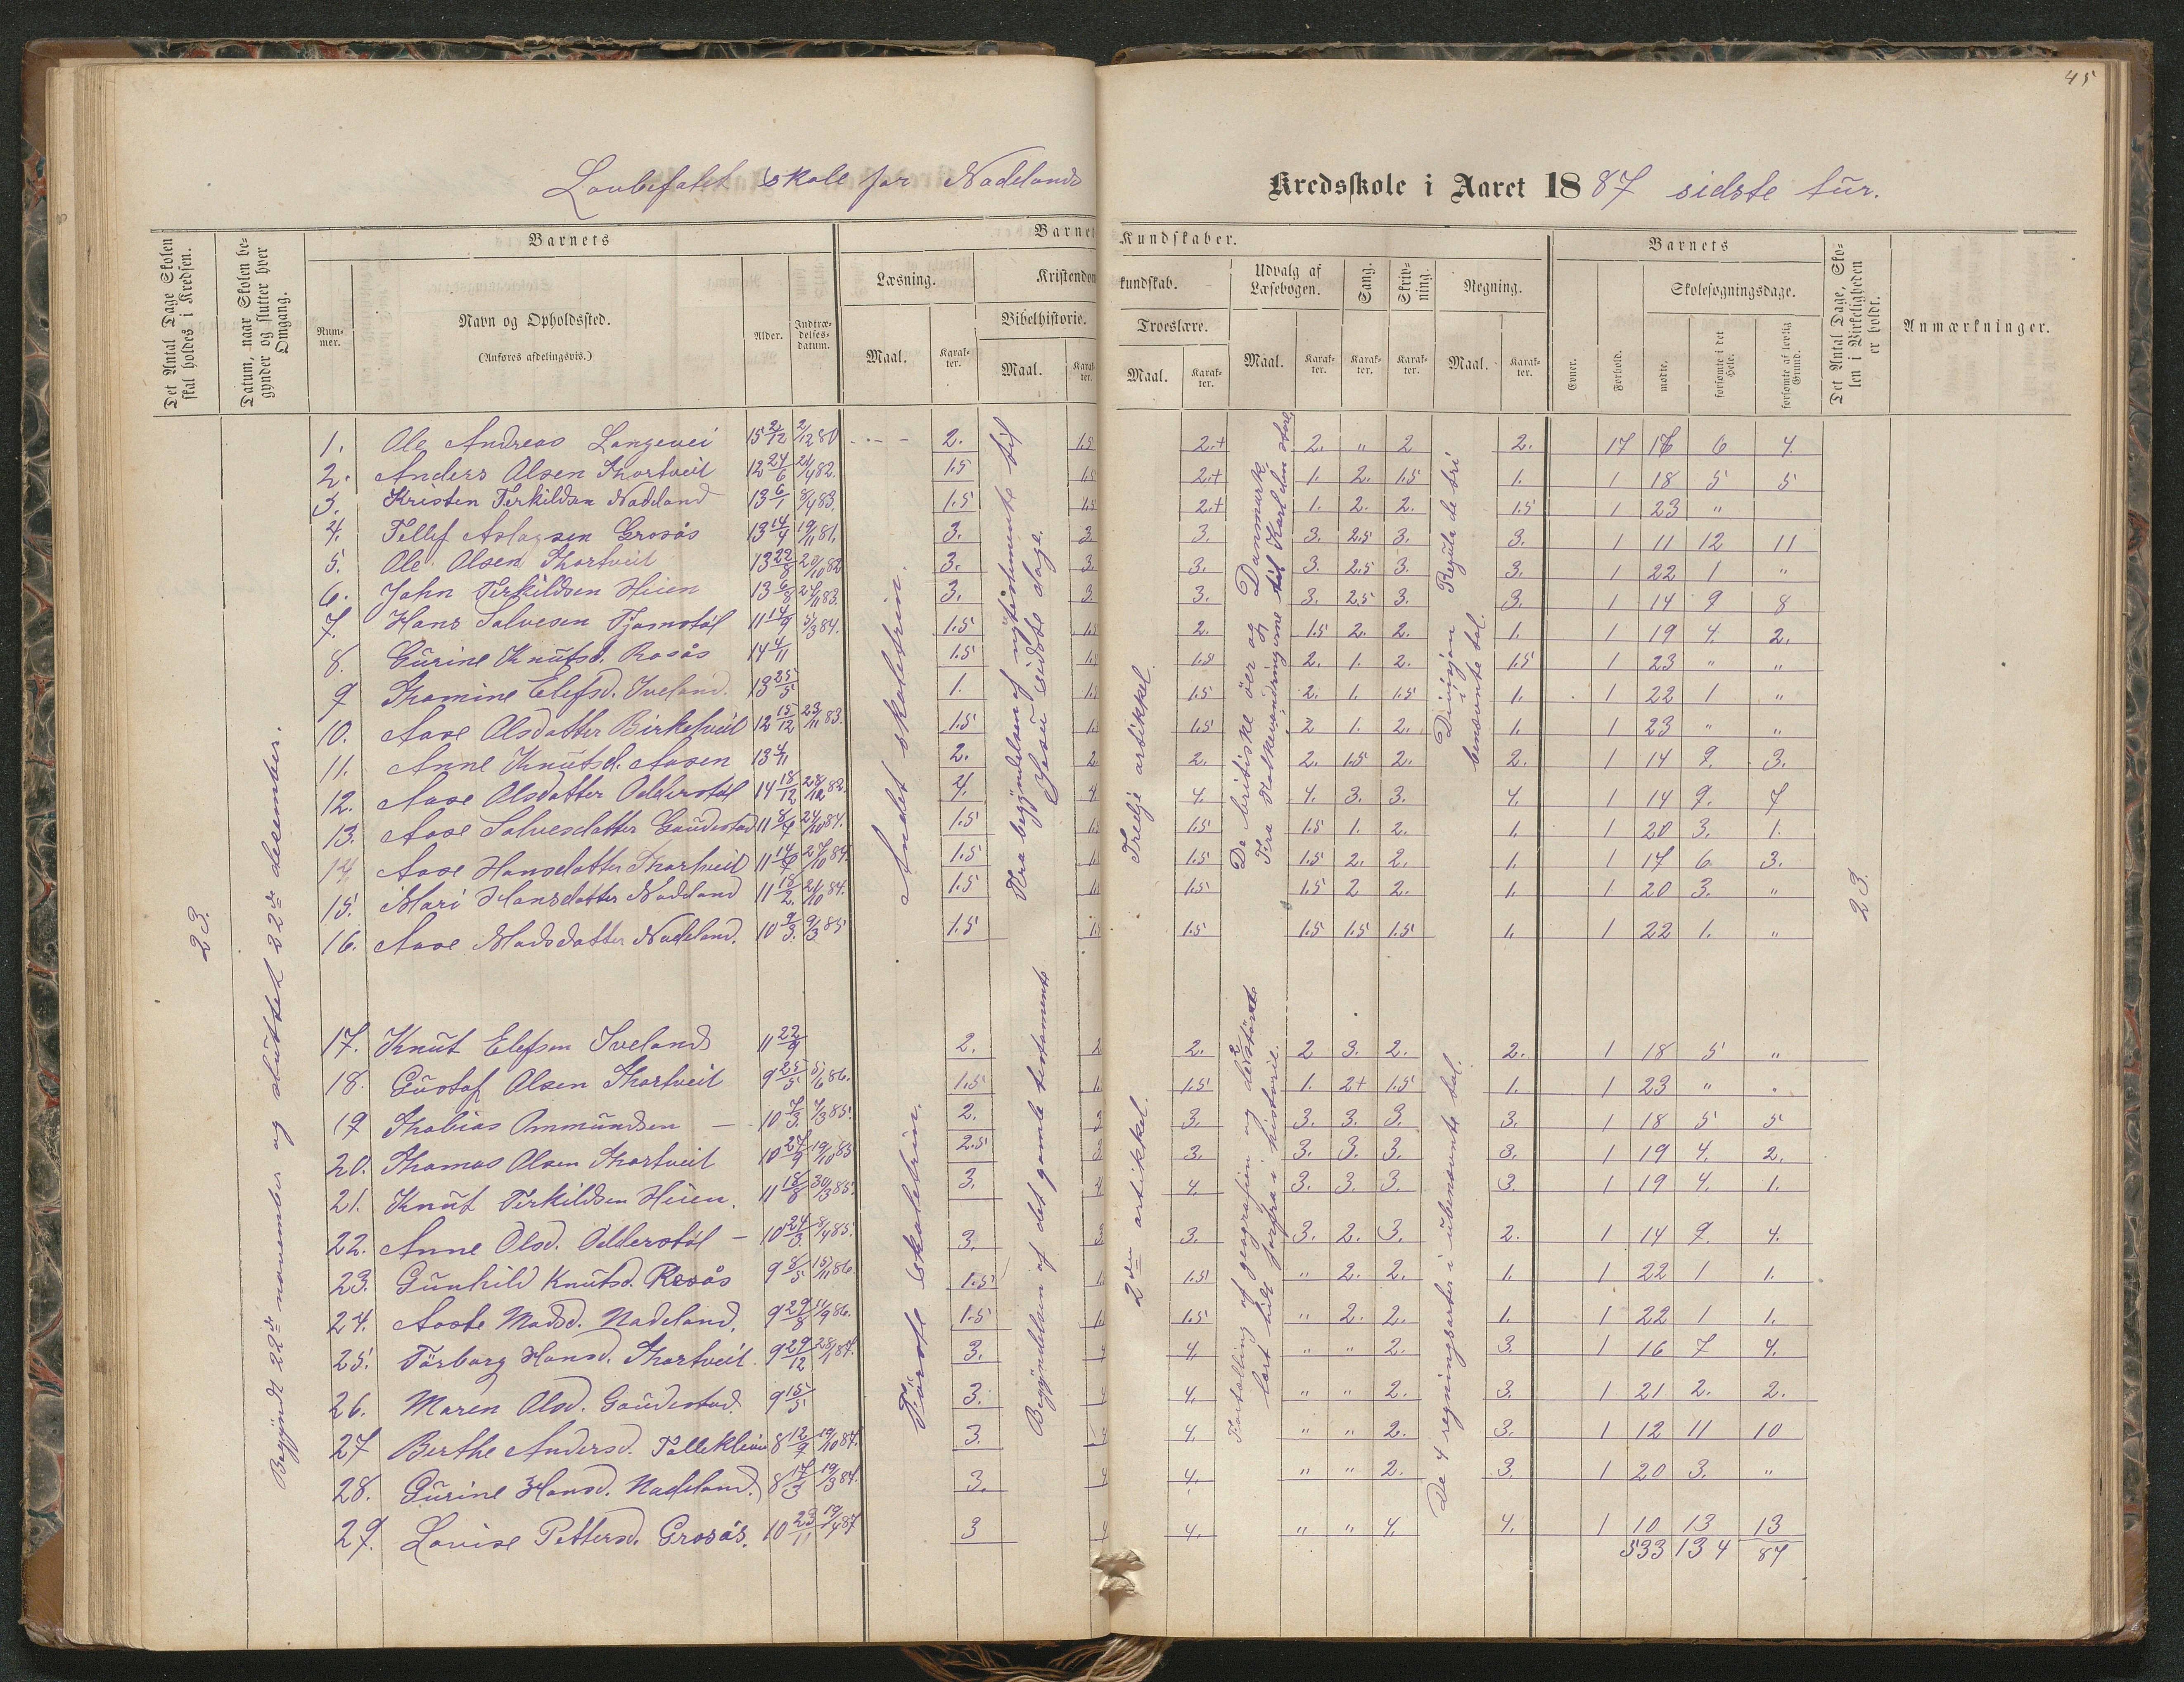 45
Lovbefalet skole for Nadelands Kredsskole i Aaret 1887 sidste tur.
Det Antal Dage Skolen skal holdes i Kredsen.
Datum, naar Skolen begynder og slutter hver Omgang.
Barnets
Nummer.
Navn og Opholdssted.
(Anføres afdelingsvis.)
Alder.
Indtrædelses-datum.
Barnets Kundskaber.
Læsning.
Maal.
Karakter.
Kristendomskundskab.
Bibelhistorie.
Maal.
Karakter.
Troeslære.
Maal.
Karakter.
Udvalg af Læsebogen.
Maal.
Karakter.
Sang.
Karakter.
Skrivning.
Karakter.
Regning.
Maal.
Karakter.
Barnets
Evner.
Forhold.
Skolesøgningsdage.
mødte.
forsømte i det Hele.
forsømte af lovlig Grund.
Det Antal Dage, Skolen i Virkeligheden er holdt.
Anmærkninger.
23.
Begyndt 22de november og sluttet 22de desember.
Andet skoletrin.
Fra begyndelsen af nytestamente til Jesu sidste dage.
Tredje artikkel.
De britiske öer og Danmark
Fra Folkevandringerne til Karl den store
Divisjon i benævnte tal. Regula de tri
23.
1. Ole Andreas Langevei 15 2/12 2/12 80 2. 1.5 2.+ 2. " 2 2. 17 16 6 4
2. Anders Olsen Thortveit 12 24/6 82. 1.5 1.5 2.+ 1. 2. 1.5 1. 1 18 5 5
3. Kristen Terkildsen Nadeland 13 6/1 83. 1.5 1.5 2.+ 1. 2. 2. 1.5 1 23 "
4. Tellef Aslagsen Grosås 13 14/4 19/11 81. 3. 3. 3. 3. 2.5 3. 3. 1 11 12 11
5. Ole Olsen Thortveit 13 22/8 20/10 82 3. 3. 3. 3. 2.5 3. 3. 1 22 1 "
6. John Terkildsen Heien 13 6/8 83. 3. 3 3. 3. 2.5 3. 3. 1 14 9 8
7. Hans Salvesen Tjomstøl 11 14/9 5/3 84. 1.5 1.5 2. 1.5 2. 2. 1. 1 19 4. 2.
8. Gurine Knutsd. Rosås 14 4/11 1.5 1.5 1.5 2. 1. 2. 1.5 1 23 " "
9 Thomine Elefsd. Iveland. 13 25/5 1. 1.5 1.5 2. 1. 1.5 1. 1 22 1 "
10. Aase Olsdatter Birketveit 12 15/12 23/11 83. 1.5 1.5 1.5 2 1. 2. 1. 1 23 " "
11. Anne Knutsd. Aasen 13 4/11 2. 2. 2. 2. 1.5 2. 2. 1 14 9. 3.
12. Aase Olsdatter Odderstøl 14 18/12 82. 4. 4. 4. 4. 3. 3. 4. 1 14 9. 7
13. Aase Salvesdatter Gaudestad 11 24/10 84. 1.5 1.5 1.5 1.5 1. 2. 1. 1 20 3. 1.
14 Aase Hansdatter Thortveit 11 27/10 84. 1.5 1. 1.5 1.5 2. 2. 1. 1 17 6. 3.
15. Mari Hansdatter Nadeland 11 18/2. 84. 1.5 1. 1.5 1.5 2 2. 1. 1 20 3. "
16. Aase Madsdatter Nadeland. 10 9/3. 9/3 85 1.5 1. 1.5 1.5 1.5 1.5 1. 1 22 1. "
Første skoletrin.
Begyndelsen af det gamle testamente
2den artikkel.
Fortælling af geografien og
lært lidt forfra i historie.
De 4 regningsarter i ubenævnte tal.
17. Knut Elefsen Iveland 11 22/9 2. 2 2. 2 3. 2. 2. 1 18 5 "
18. Gustaf Olsen Thortveit 9 25/5 86. 1.5 1. 1.5 1. 2+ 1.5 1. 1 23 " .
19 Thobias Ommundsen — 10 7/3. 7/3 85. 2. 3 3. 3. 3. 3. 3. 1 18 5 5
20. Thomas Olsen Thortveit 10 27/9 19/10 85 2.5 3 3. 3. 3. 3. 3. 1 19 4. 2.
21. Knut Terkildsen Heien. 11 18/8 30/3 85. 3. 4. 4. 3. 3. 3. 3. 1 19 4. 1.
22. Anne Olsd. Odderstøl — 10 24/3 85. 3. 3 3. 3. 2. 3. 2. 1 14 9. 4.
23. Gunhild Knutsd. Rosås 9 8/5 15/11 86. 1.5 1. 1.5 " 2. 2. 1. 1 22 1 1.
24. Aaste Madsd. Nadeland. 9 29/8 86. 1.5 1. 1.5 " 2. 2. 1. 1 22 1 1.
25. Tårborg Hansd. Thortveit. 9 29/12 28/1 84. 3. 4 4. " " 2. 3. 1 16 7 4.
26. Maren Olsd. Gaudestad. 9 15/5 3. 4. " " 2. 3. 1 21 2. 2.
27 Berthe Andersd. 8 12/9 19/10 84. 3. 4. " " 2. 3. 1 12 11 10
28. Gurine Hansd. Nadeland. 8 17/3 19/3 84. 3. 4 4. " " 2. 3. 1 20 3. "
29. Lovise Pettersd. Grosås. 10 23/11 19/4 87 3 4 4. " " 4. 4. 1 10 13 13
533 134 87